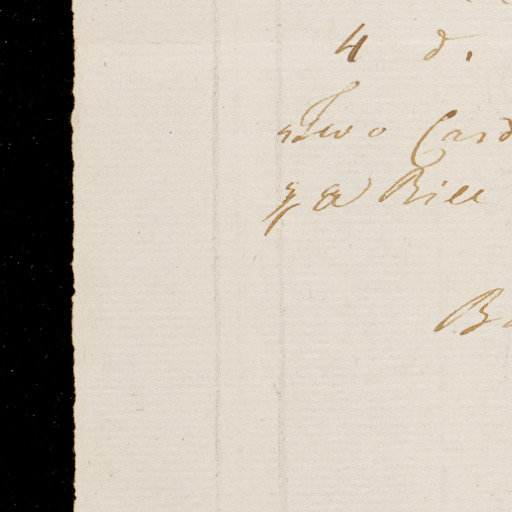 4 d.
Two Card
Bill
B